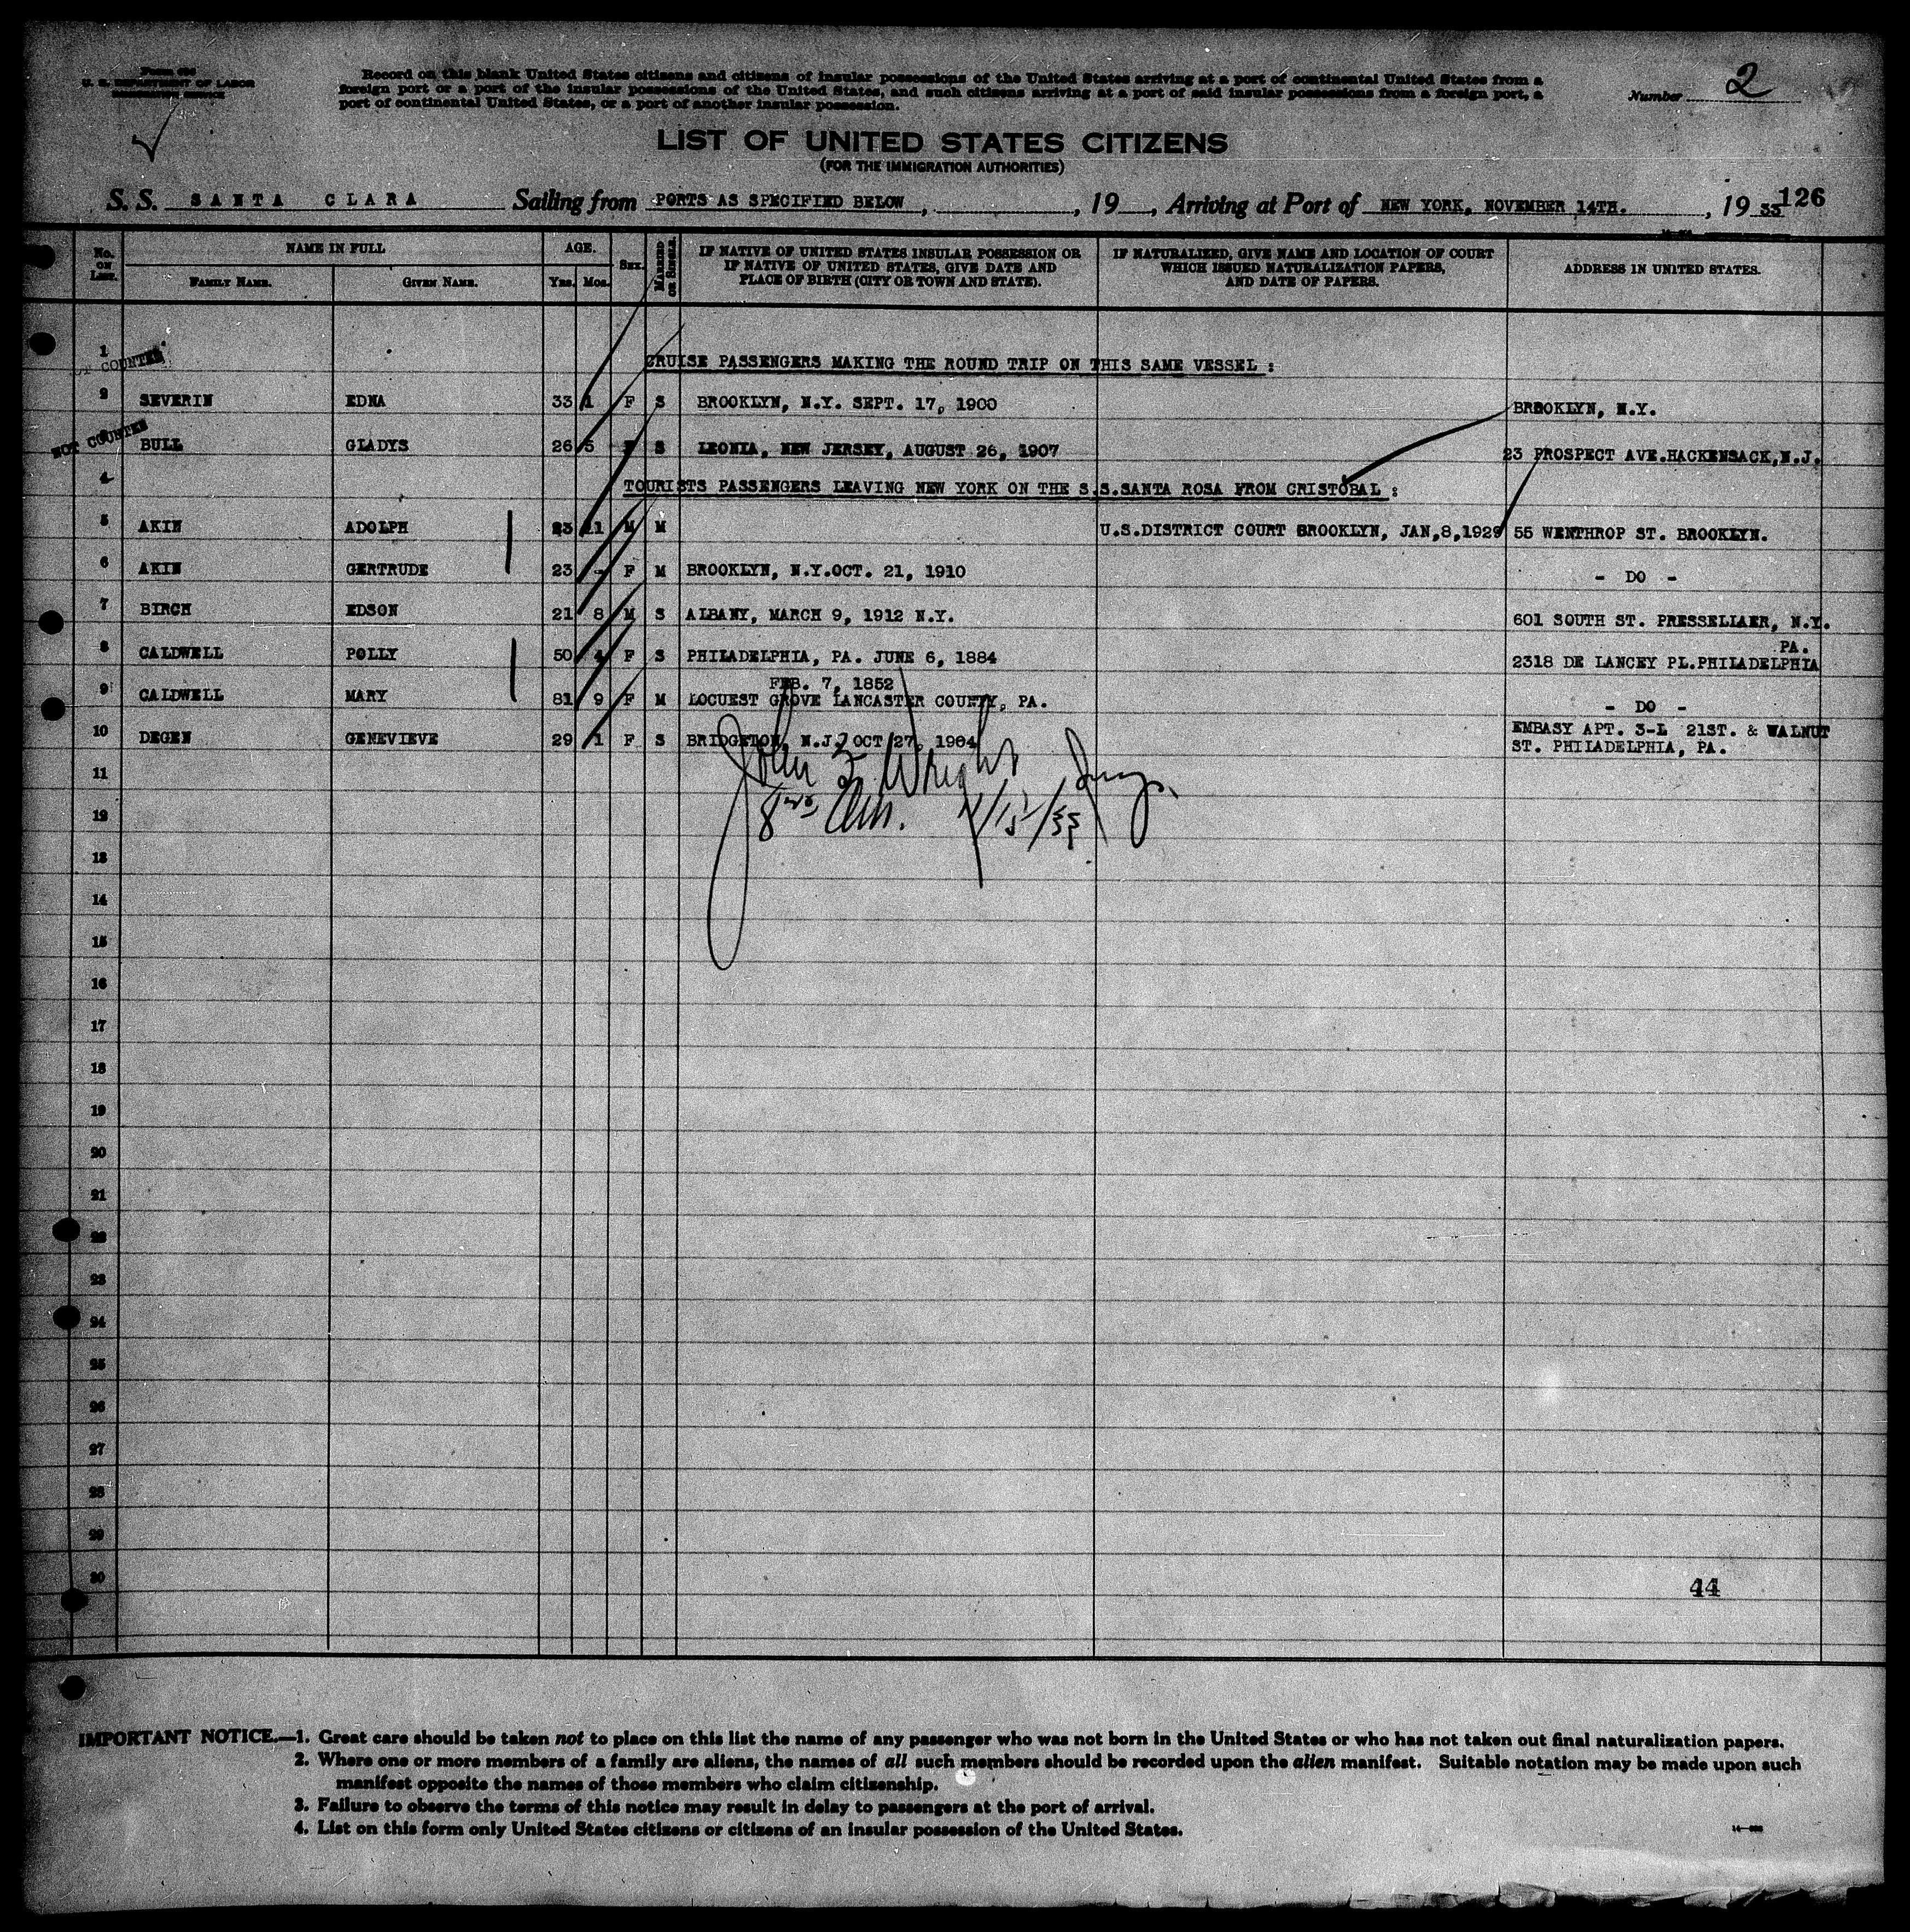 Form 630
U. S. DEPARTMENT OF LABOR
IMMIGRATION SERVICE
Record on this blank United States citizens and citizens of insular possessions of the United States arriving at a port of continental United States from a
foreign port or a port of the insular possessions of the United States, and such citizens arriving at a port of said insular possessions from a foreign port, a
port of continental United States, or a port of another insular possession.
Number 2
LIST OF UNITED STATES CITIZENS
(FOR THE IMMIGRATION AUTHORITIES)
S. S. SANTA CLARA Sailing from PORTS AS SPECIFIED BELOW, , 19 , Arriving at Port of NEW YORK, NOVEMBER 14TH. , 19 33 126
No. ON LIST. NAME IN FULL AGE. SEX. MARRIED OR SINGLE. IF NATIVE OF UNITED STATES INSULAR POSSESSION OR IF NATIVE OF UNITED STATES, GIVE DATE AND PLACE OF BIRTH (CITY OR TOWN AND STATE). IF NATURALIZED, GIVE NAME AND LOCATION OF COURT WHICH ISSUED NATURALIZATION PAPERS, AND DATE OF PAPERS. ADDRESS IN UNITED STATES.
FAMILY NAME. GIVEN NAME. Yrs. Mos.
1 CRUISE PASSENGERS MAKING THE ROUND TRIP ON THIS SAME VESSEL :
2 SEVERIN EDNA 33 1 F S BROOKLYN, N.Y. SEPT. 17, 1900 BROOKLYN, N.Y.
NOT COUNTED
BULL GLADYS 26 5 F S LEONIA, NEW JERSEY, AUGUST 26, 1907 23 PROSPECT AVE.HACKENSACK,N.J.
4 TOURISTS PASSENGERS LEAVING NEW YORK ON THE S.S.SANTA ROSA FROM CRISTOBAL :
5 AKIN ADOLPH 23 11 M M U.S.DISTRICT COURT BROOKLYN, JAN,8,1929 55 WENTHROP ST. BROOKLYN.
6 AKIN GERTRUDE 23 - F M BROOKLYN, N.Y.OCT. 21, 1910 - DO -
7 BIRCH EDSON 21 8 M S ALBANY, MARCH 9, 1912 N.Y. 601 SOUTH ST. PRESSELIAER, N.Y.
8 CALDWELL POLLY 50 4 F S PHILADELPHIA, PA. JUNE 6, 1884 2318 DE LANCEY PL.PHILADELPHIA PA.
FEB. 7, 1852
9 CALDWELL MARY 81 9 F M LOCUEST GROVE LANCASTER COUNTY, PA. - DO -
10 DEGEN GENEVIEVE 29 1 F S BRIDGETON, N.J. OCT 27, 1904 EMBASY APT. 3-L 21ST. & WALNUT
ST. PHILADELPHIA, PA.
John Wright
11
12
13
14
15
16
17
18
19
20
21
22
23
24
25
26
27
28
29
30
44
IMPORTANT NOTICE.—1. Great care should be taken not to place on this list the name of any passenger who was not born in the United States or who has not taken out final naturalization papers.
2. Where one or more members of a family are aliens, the names of all such members should be recorded upon the alien manifest. Suitable notation may be made upon such
manifest opposite the names of those members who claim citizenship.
3. Failure to observe the terms of this notice may result in delay to passengers at the port of arrival.
4. List on this form only United States citizens or citizens of an insular possession of the United States.